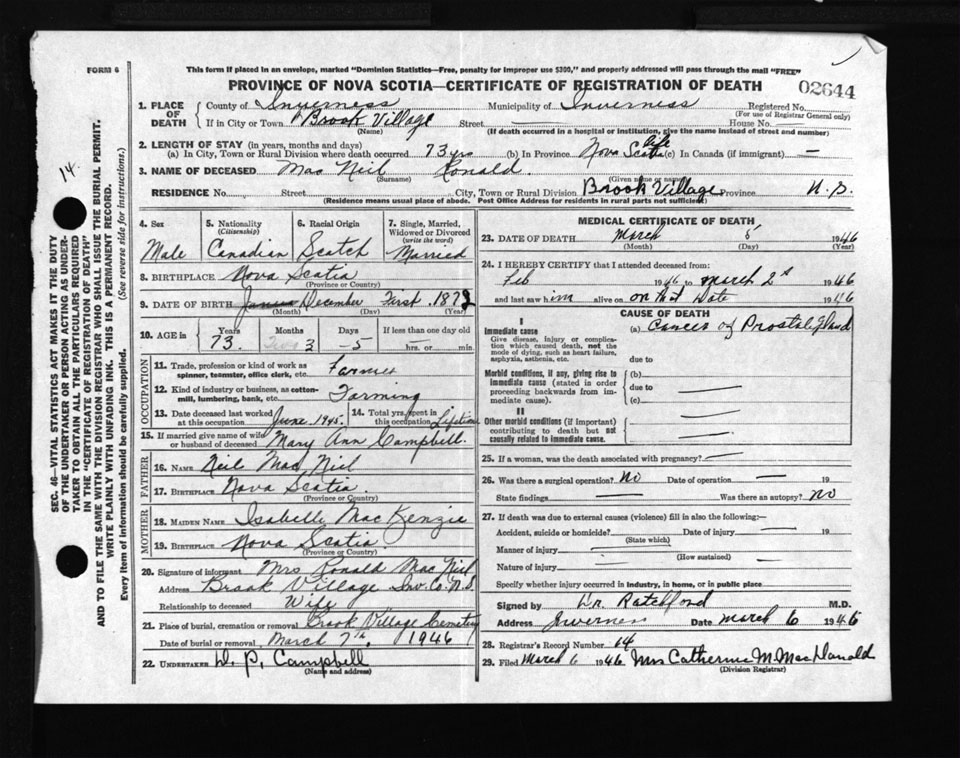 FORM 6
This form if placed in an envelope, marked "Dominion Statistics—Free, penalty for improper use $300," and properly addressed will pass through the mail "FREE"
PROVINCE OF NOVA SCOTIA—CERTIFICATE OF REGISTRATION OF DEATH 02644
1. PLACE OF DEATH
County of Inverness Municipality of Inverness Registered No.
(For use of Registrar General only)
If in City or Town Brook Village Street House No.
(Name) (If death occurred in a hospital or institution, give the name instead of street and number)
2. LENGTH OF STAY (in years, months and days)
(a) In City, Town or Rural Division where death occurred 73 yrs (b) In Province Nova Scotia life (c) In Canada (if immigrant) —
3. NAME OF DECEASED Mac Neil Ronald.
(Surname) (Given name or names)
RESIDENCE No. Street City, Town or Rural Division Brook Village Province N.S.
(Residence means usual place of abode. Post Office Address for residents in rural parts not sufficient)
4. Sex Male
5. Nationality (Citizenship) Canadian
6. Racial Origin Scotch
7. Single, Married, Widowed or Divorced (write the word) Married
8. BIRTHPLACE Nova Scotia
(Province or Country)
9. DATE OF BIRTH December First 1872
(Month) (Day) (Year)
10. AGE is Years 73. Months 3 Days 5 If less than one day old
— hrs. or — min.
OCCUPATION
11. Trade, profession or kind of work as spinner, teamster, office clerk, etc. Farmer
12. Kind of industry or business, as cotton-mill, lumbering, bank, etc. Farming
13. Date deceased last worked at this occupation June 1945. 14. Total yrs. spent in this occupation Lifetime
15. If married give name of wife or husband of deceased Mary Ann Campbell.
FATHER
16. NAME Neil Mac Neil
17. BIRTHPLACE Nova Scotia.
(Province or Country)
MOTHER
18. MAIDEN NAME Isabelle MacKenzie
19. BIRTHPLACE Nova Scotia.
(Province or Country)
20. Signature of informant Mrs Ronald Mac Neil
Address Brook Village Inv. Co. N.S
Relationship to deceased Wife
21. Place of burial, cremation or removal Brook Village Cemetery
Date of burial or removal March 7th 1946
22. UNDERTAKER D. P. Campbell
(Name and address)
MEDICAL CERTIFICATE OF DEATH
23. DATE OF DEATH March 5 1946
(Month) (Day)
24. I HEREBY CERTIFY that I attended deceased from:
Feb 1946 to March 2nd 1946
and last saw him alive on that Date 1946
CAUSE OF DEATH
I
Immediate cause (a) Cancer of Prostate Gland
Give disease, injury or complication which caused death, not the mode of dying, such as heart failure, asphyxia, asthenia, etc. due to
Morbid conditions, if any, giving rise to immediate cause (stated in order proceeding backwards from immediate cause). (b) — due to — (c) —
II
Other morbid conditions (if important) contributing to death but not causally related to immediate cause.
25. If a woman, was the death associated with pregnancy? —
26. Was there a surgical operation? No Date of operation — 19
State findings — Was there an autopsy? No
27. If death was due to external causes (violence) fill in also the following:—
Accident, suicide or homicide? — Date of injury — 19
(State which)
Manner of injury —
(How sustained)
Nature of injury —
Specify whether injury occurred in industry, in home, or in public place
Signed by Dr. Ratchford M.D.
Address Inverness Date March 6 1946
28. Registrar's Record Number 14
29. Filed March 6 1946 Mrs Catherine M. MacDonald
(Division Registrar)
14.
SEC. 46—VITAL STATISTICS ACT MAKES IT THE DUTY
OF THE UNDERTAKER OR PERSON ACTING AS UNDERTAKER TO OBTAIN ALL THE PARTICULARS REQUIRED
IN THE "CERTIFICATE OF REGISTRATION OF DEATH"
AND TO FILE THE SAME WITH THE DIVISION REGISTRAR WHO SHALL ISSUE THE BURIAL PERMIT.
WRITE PLAINLY WITH UNFADING INK. THIS IS A PERMANENT RECORD.
Every item of information should be carefully supplied. (See reverse side for instructions.)